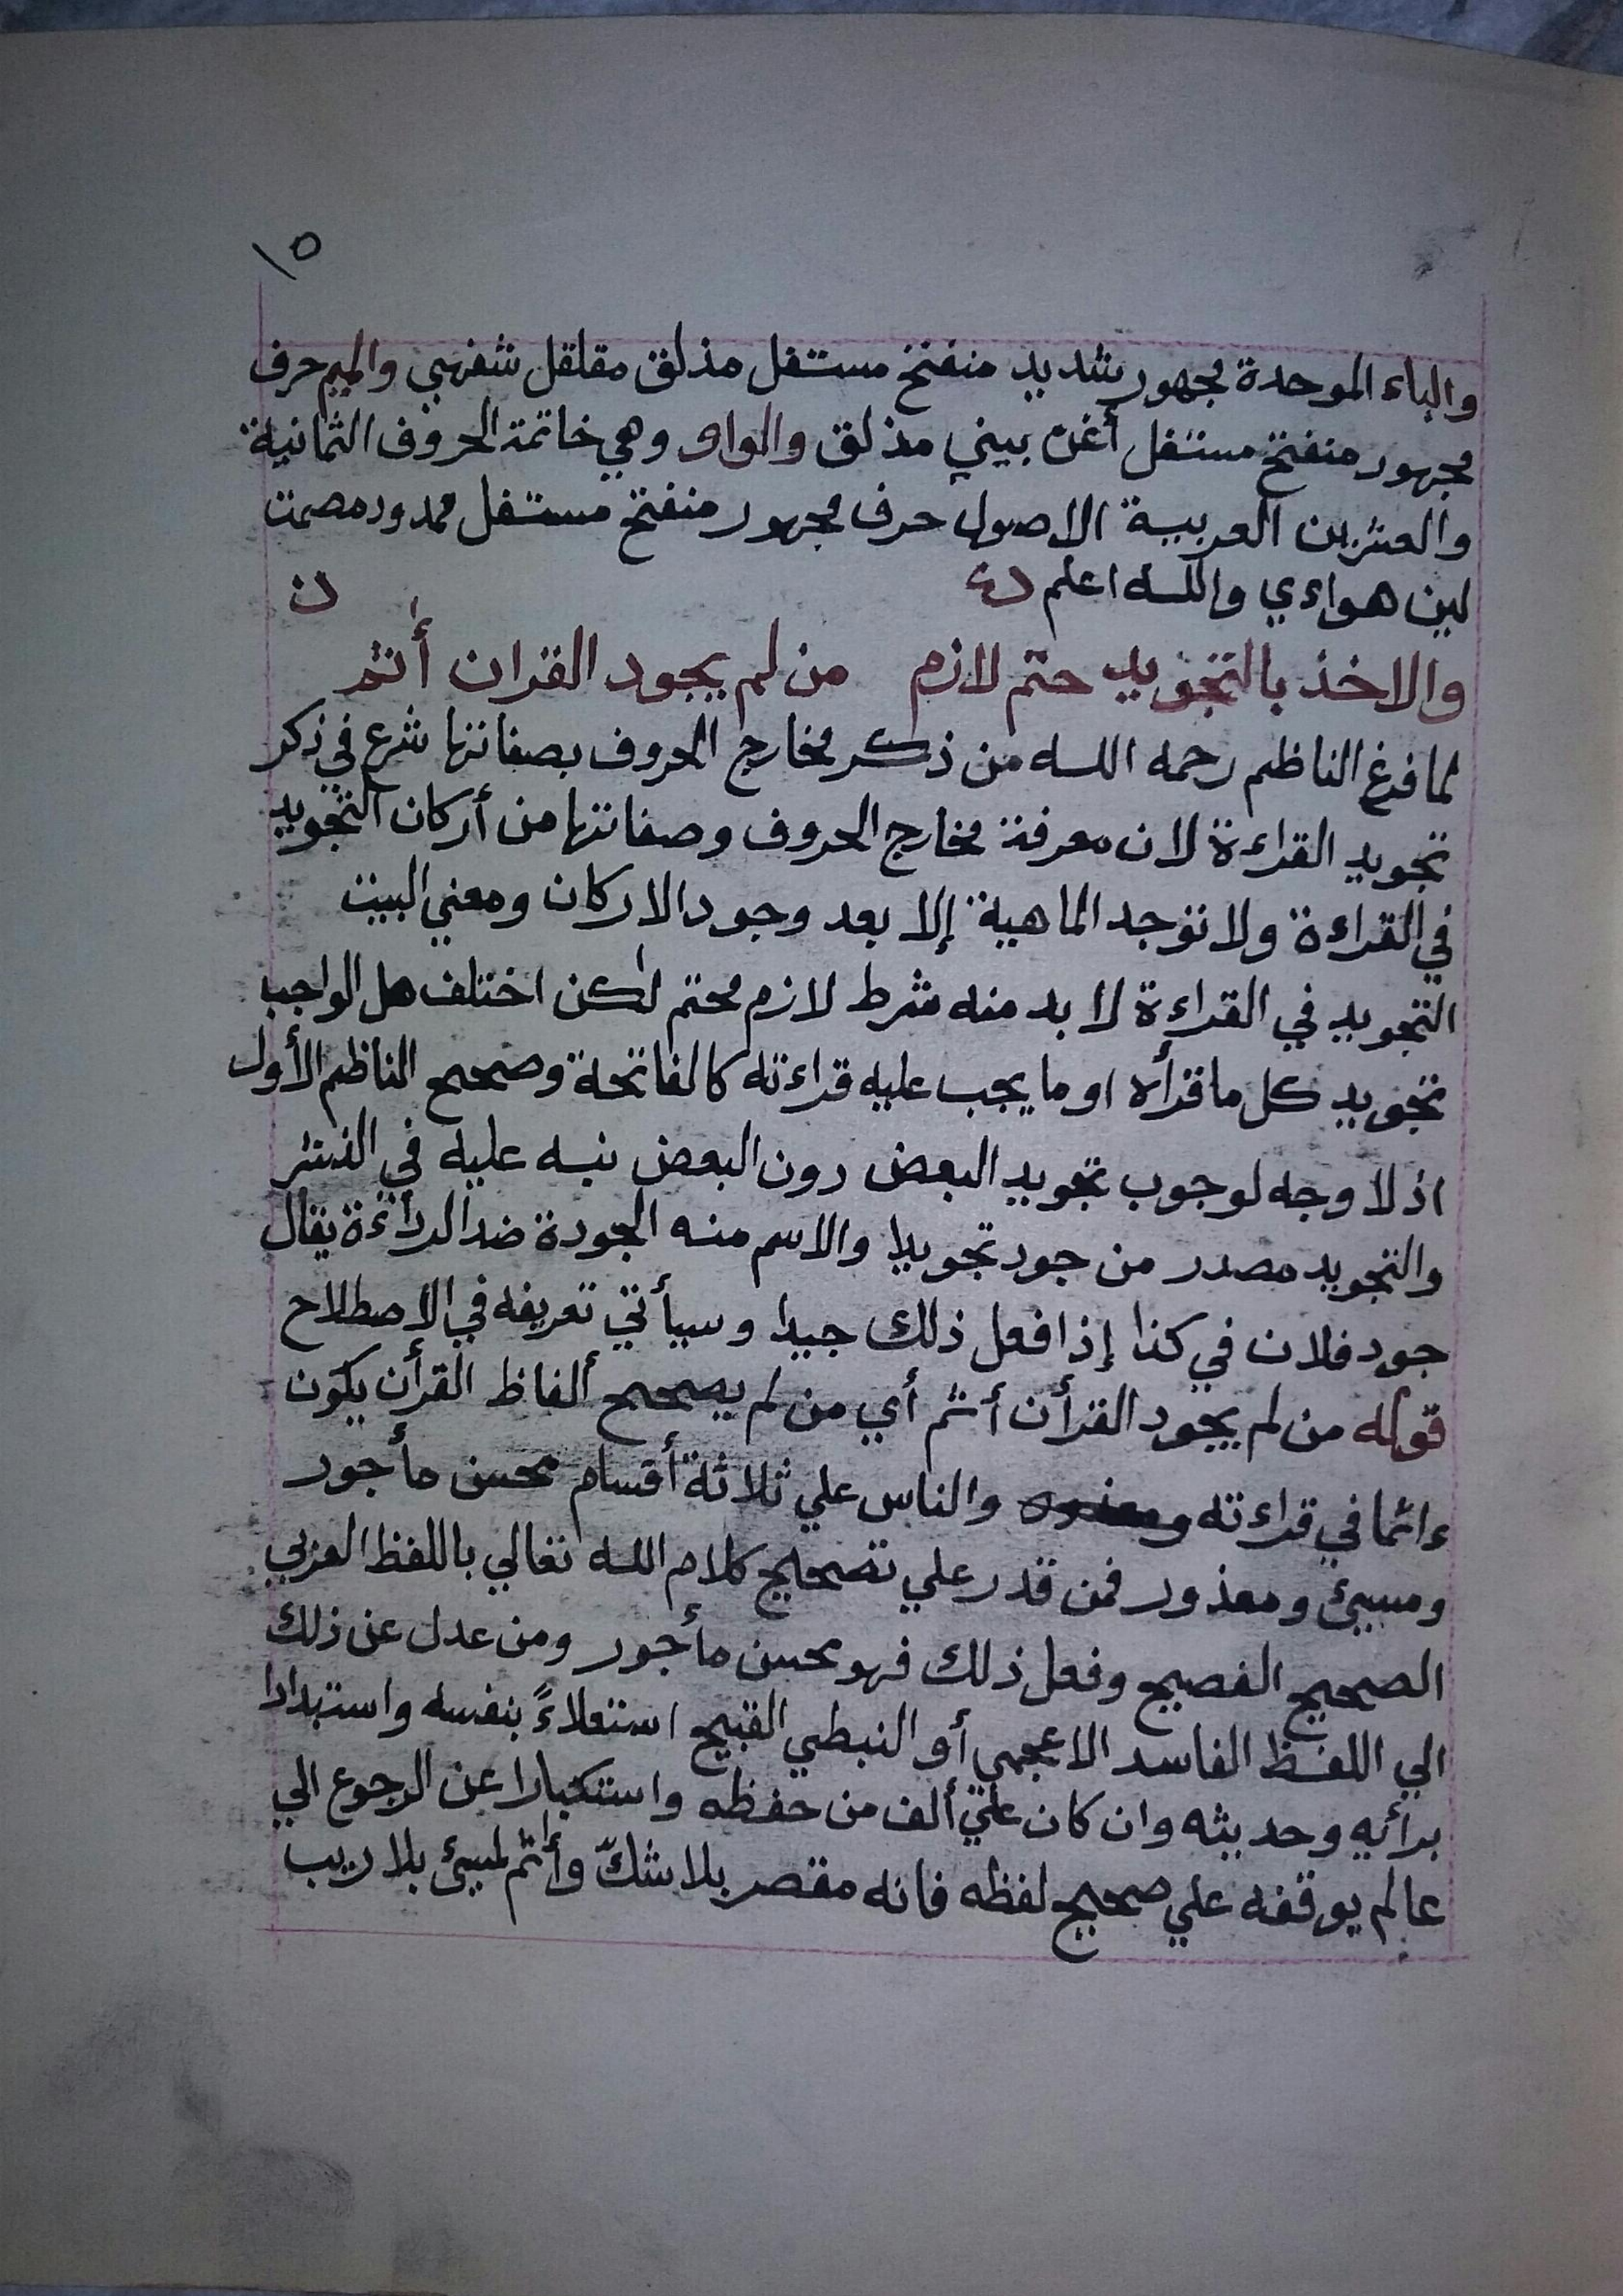 ١٥
والباء الموحدة مجهور شديد منفتح مستفل مذلق مقلقل شفهي والميم حرف
مجهور منفتح مستفل أغن بيني مذلق والواو وهي خاتمة الحروف الثمانية
والعشرين العربية الاصول حرف مجهور منفتح مستفل ممدود مصمت
لين هواءي والله اعلم
والاخذ بالتجويد حتم لازم من لم يجود القران أثم
لما فرغ الناظم رحمه الله من ذكر مخارج الحروف بصفاتها شرع في ذكر
تجويد القراءة لان معرفة مخارج الحروف وصفاتها من أركان التجويد
في القراءة ولا توجد الماهية إلا بعد وجود الاركان ومعني البيت
التجويد في القراءة لا بد منه شرط لازم محتم لكن اختلف هل الواجب
تجويد كل ما قرأه او ما يجب عليه قراءته كالفاتحة وصحح الناظم الأول
اذ لا وجه لوجوب تجويد البعض دون البعض نبه عليه في النشر
والتجويد مصدر من جود تجويدا والاسم منه الجودة ضد الردائة يقال
جود فلان في كذا إذا فعل ذلك جيدا وسيأتي تعريفه في الاصطلاح
قوله من لم يجود القرأن أثم أي من لم يصحح ألفاظ القرأن يكون
ءاثما في قراءته والناس علي ثلاثة أقسام محسن مأجور
ومسيئ ومعذور فمن قدر علي تصحيح كلام الله تعالي باللفظ العربي
الصحيح الفصيح وفعل ذلك فهو محسن مأجور ومن عدل عن ذلك
الي اللفظ الفاسد الاعجمي أو النبطي القبيح استعلاءً بنفسه واستبدادا
برأيه وحديثه وان كان علي ألف من حفظه واستكبارا عن الرجوع الي
عالم يوقفه علي صحيح لفظه فانه مقصر بلا شكّ وأثم لمسيئ بلا ريب